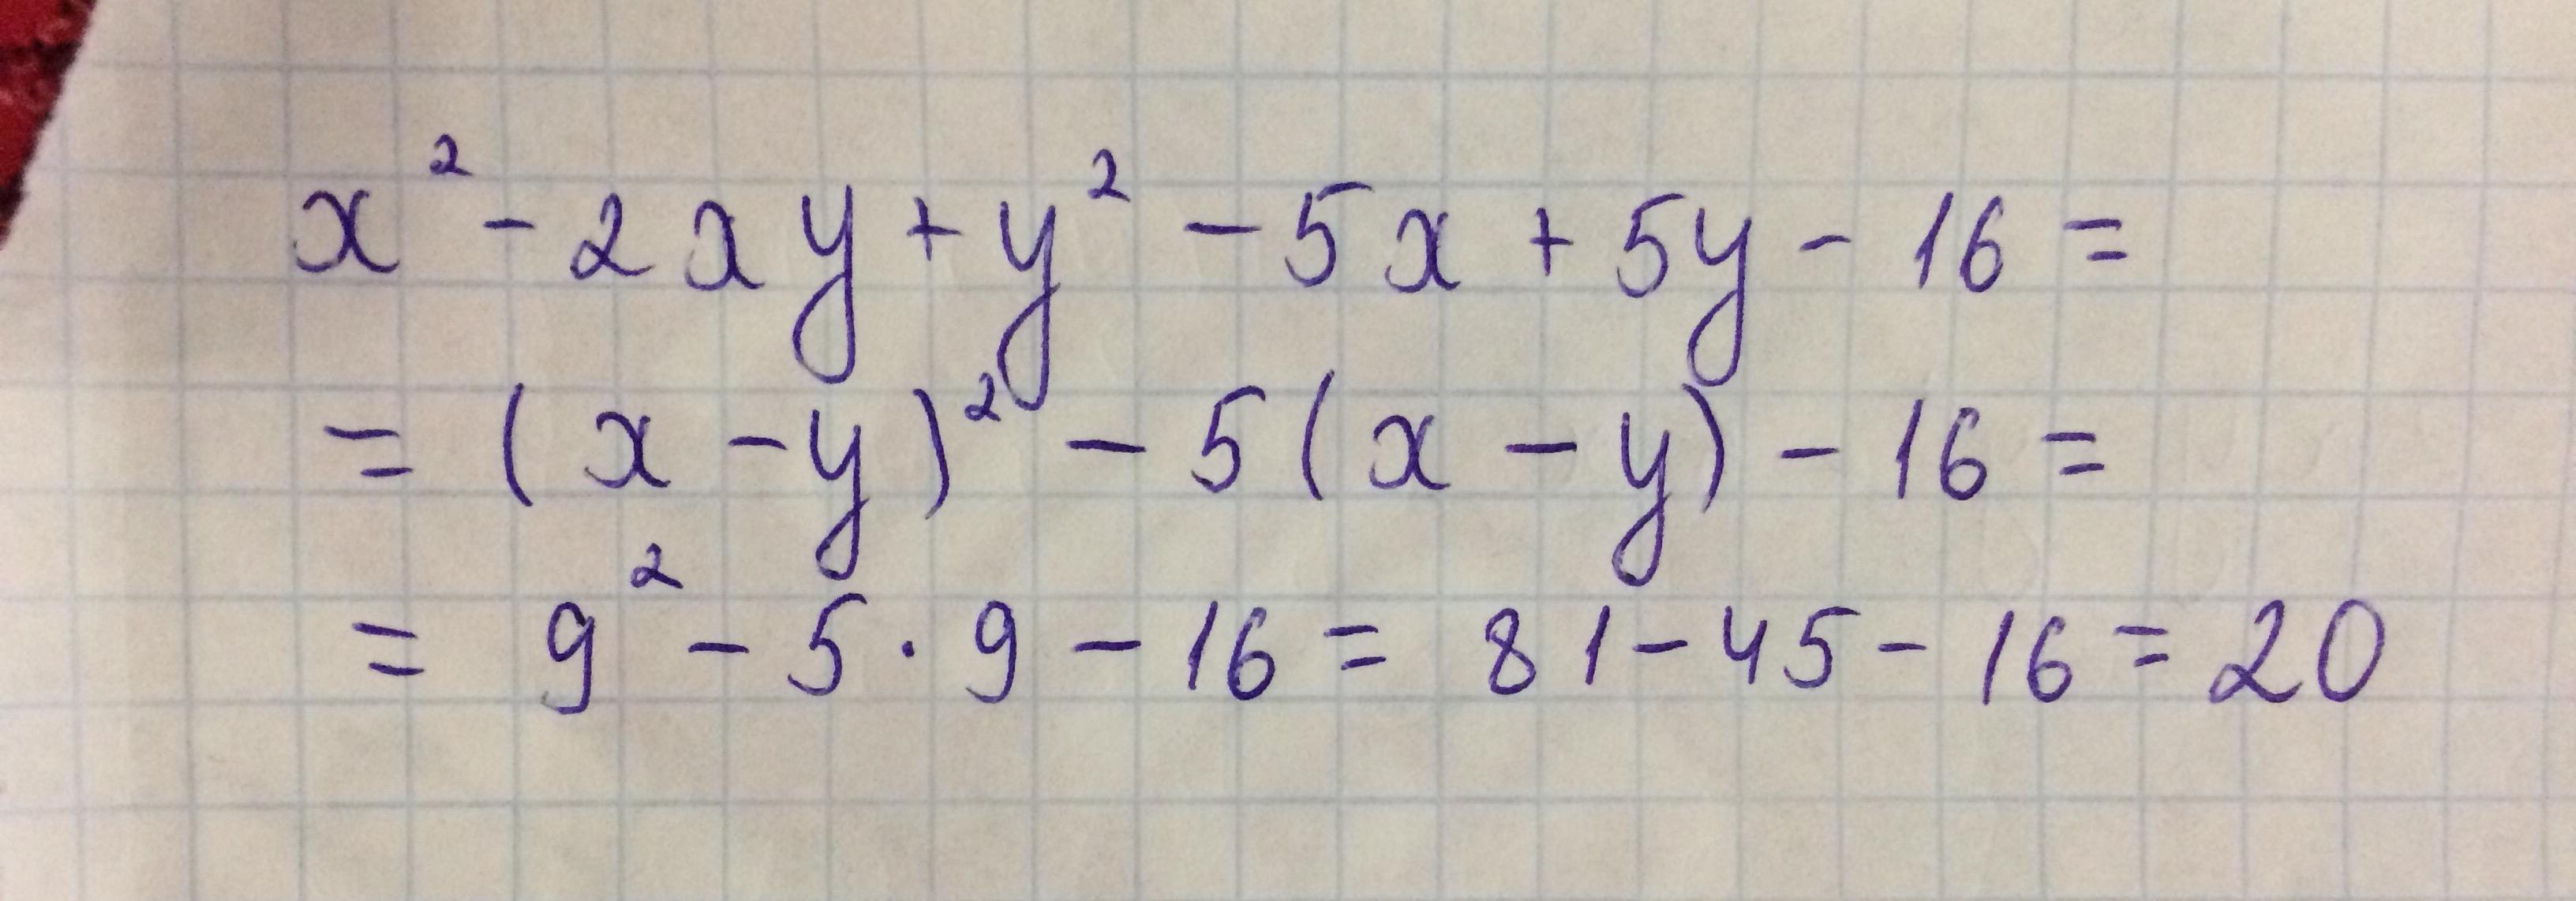 x² - 2xy + y² - 5x + 5y - 16 =
= (x - y)² - 5(x - y) - 16 =
= 9² - 5 · 9 - 16 = 81 - 45 - 16 = 20